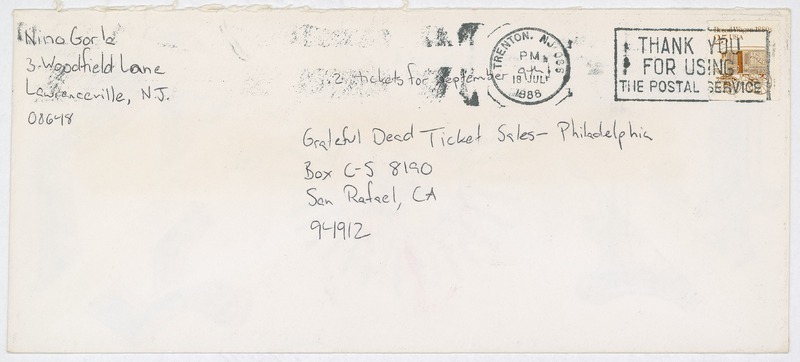 Nina Gorla
3 Woodfield Lane
Lawrenceville, N.J.
08648
2 tickets for September 9th
TRENTON, NJ 086
PM
18 JUL
1988
THANK YOU
FOR USING
THE POSTAL SERVICE
Grateful Dead Ticket Sales - Philadelphia
Box C-S 8190
San Rafael, CA
94912